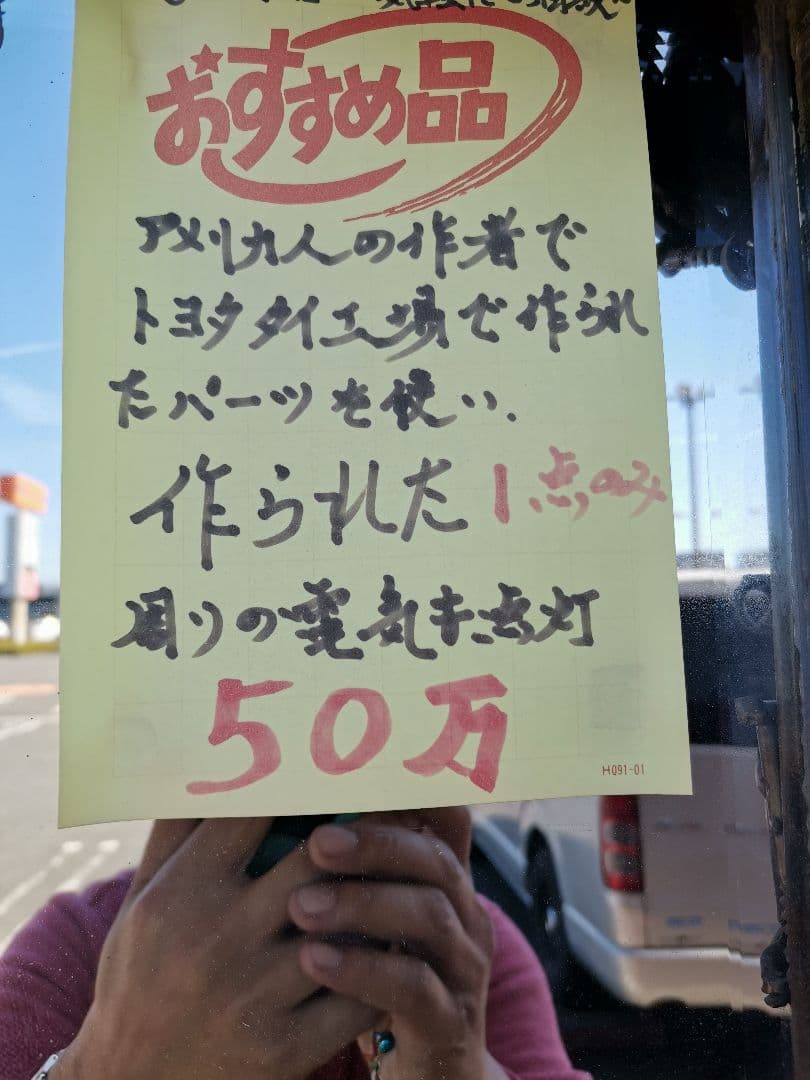 おすすめ品
アメリカ人の作者で
トヨタタイ工場で作られ
たパーツを使い、
作られた1点のみ
周りの電気未点灯
50万
H091-01